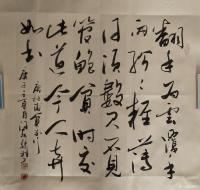 翻手為雲覆手
雨紛紛輕薄
何須數君不見
管鮑貧時交
此道今人棄
如土